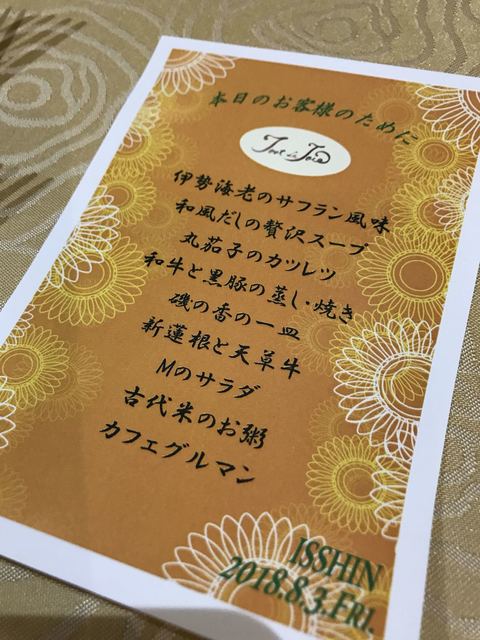 本日のお客様のために
伊勢海老のサフラン風味
和風だしの贅沢スープ
丸茄子のカツレツ
和牛と黒豚の蒸し焼き
磯の香の一皿
新蓮根と天草牛
Mのサラダ
古代米のお粥
カフェグルマン
ISSHIN
2018.8.3.FRI.